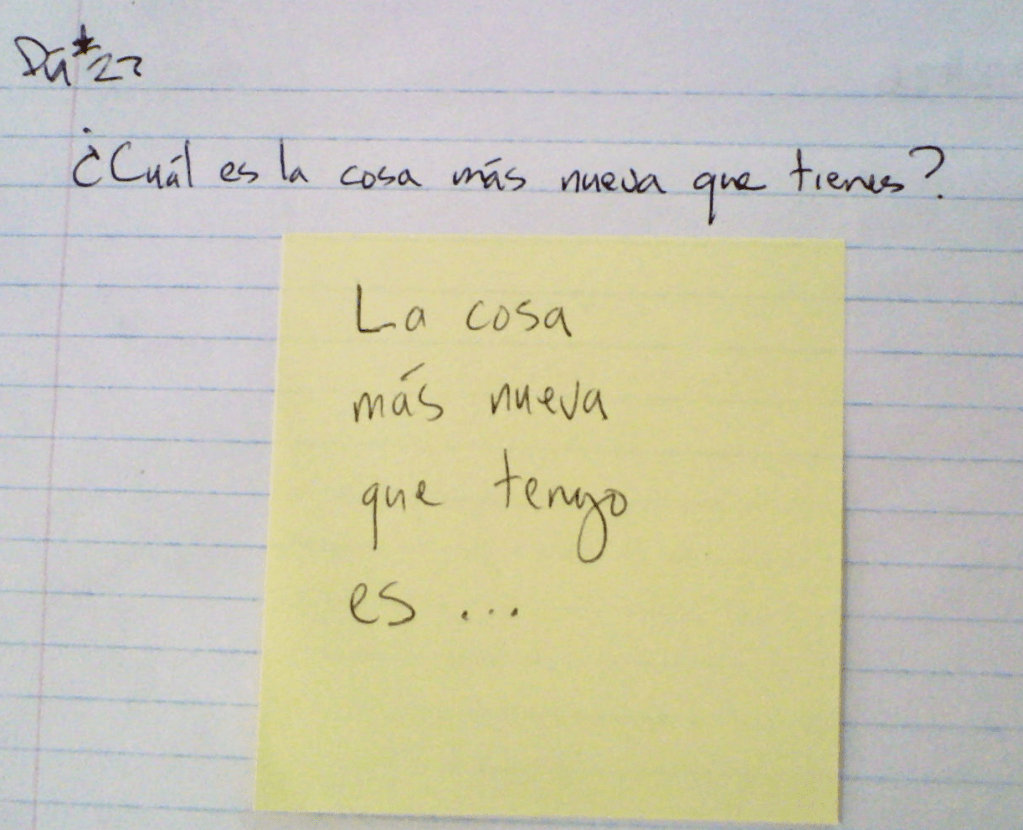 Día #22
¿Cuál es la cosa más nueva que tienes?
La cosa
más nueva
que tengo
es ...